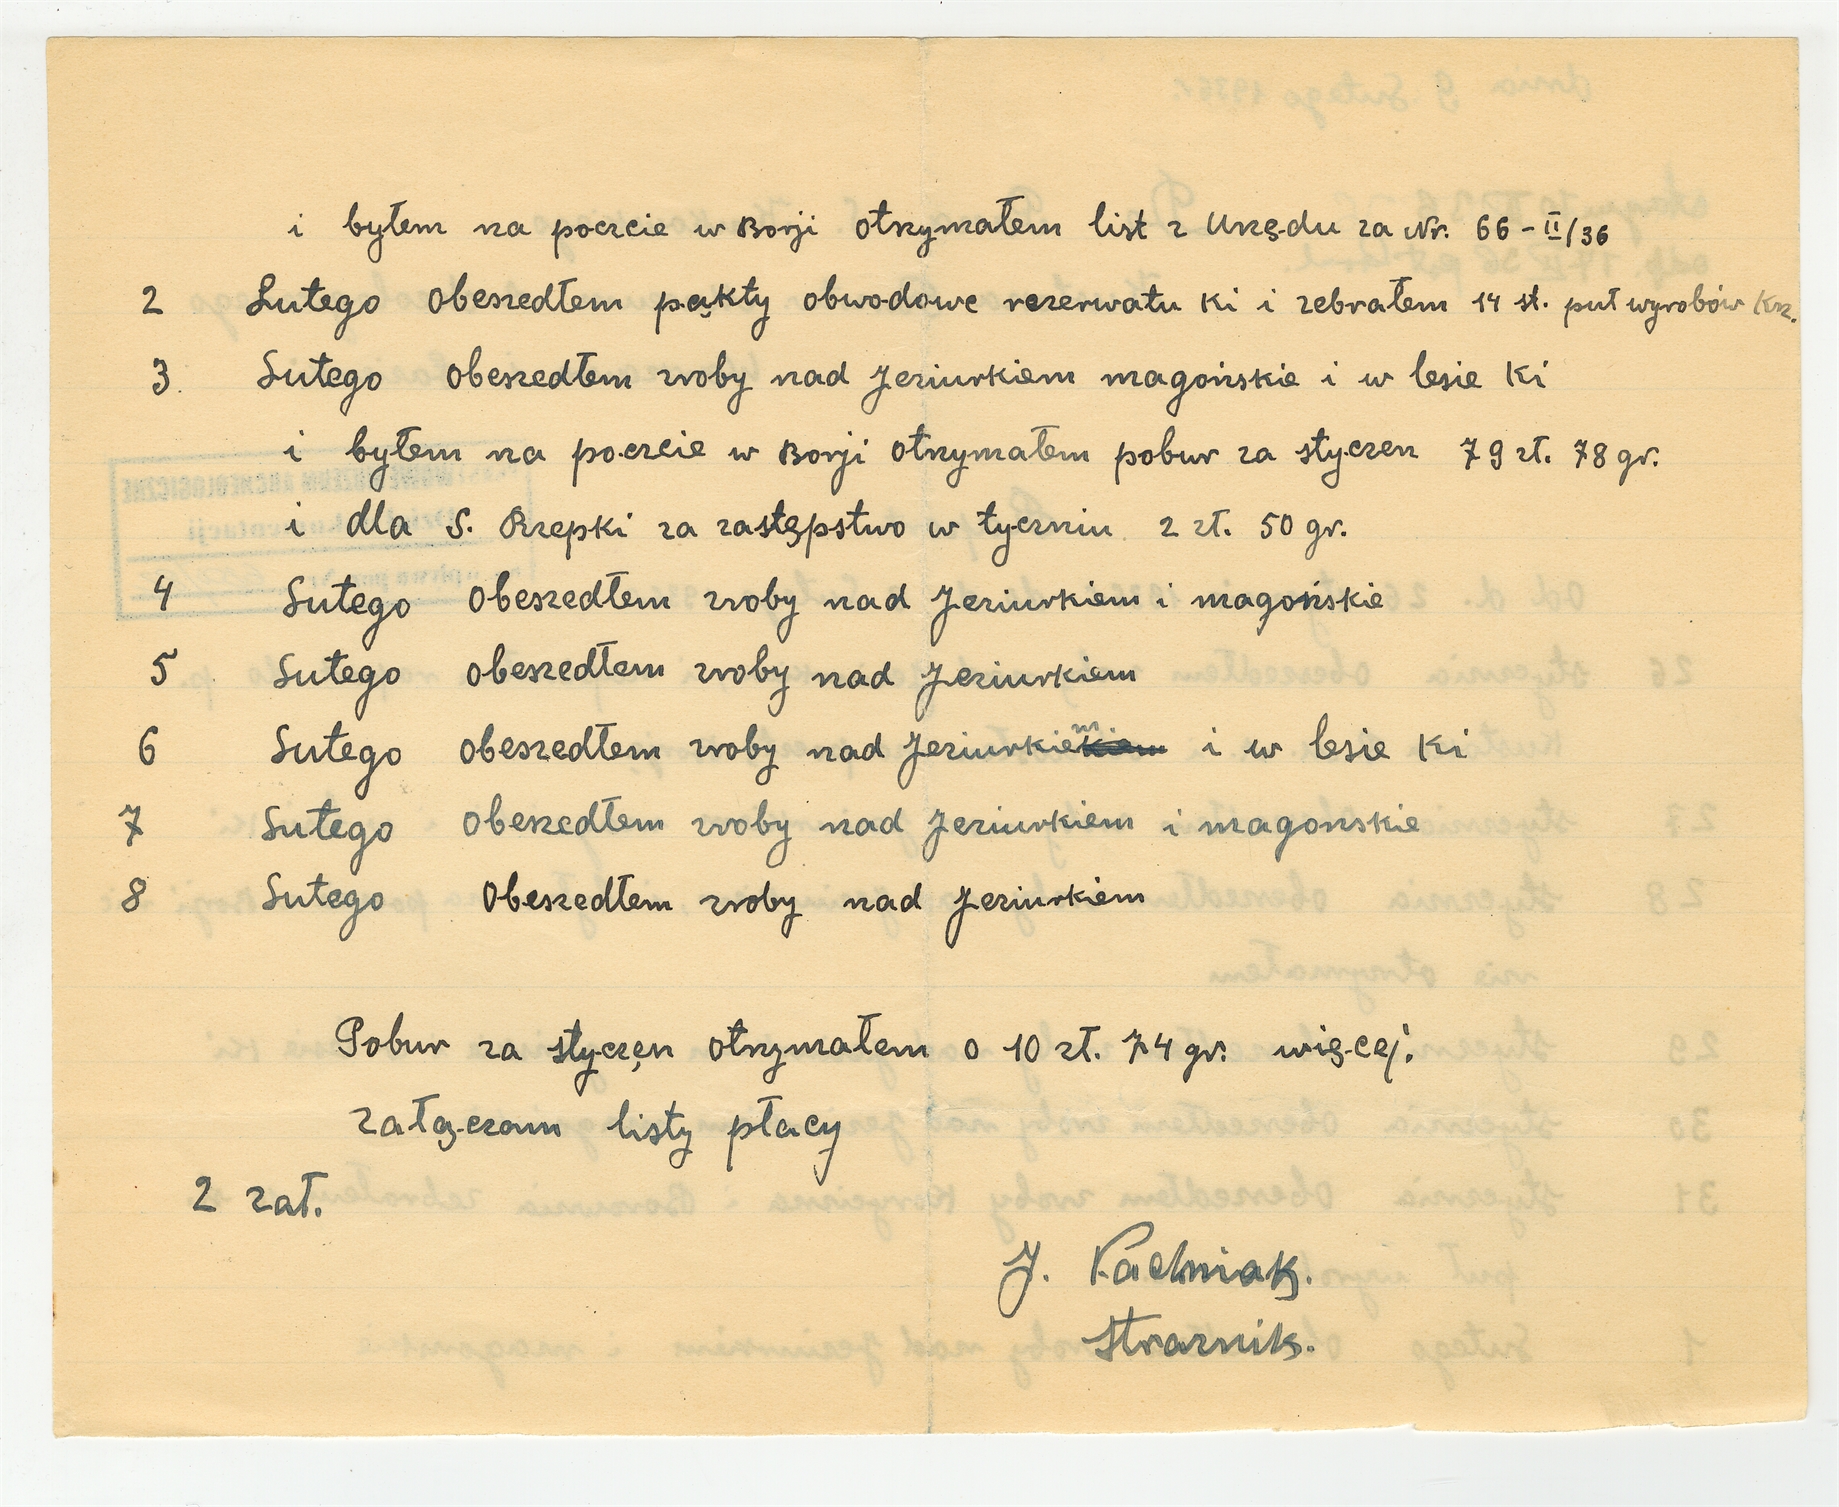 i byłem na poczcie w Borji otrzymałem list z Urzędu za Nr. 66-II/36
2 Lutego obeszedłem pąkty obwodowe rezerwatu Ki i zebrałem 14 st. puł wyrobów Krz.
3. Lutego obeszedłem zroby nad Jeziurkiem magońskie i w lesie Ki
i byłem na poczcie w Borji otrzymałem pobur za styczen 79 zł. 78 gr.
i dla S. Rzepki za zastępstwo w tyczniu 2 zł. 50 gr.
4 Lutego obeszedłem zroby nad Jeziurkiem i magońskie
5 Lutego obeszedłem zroby nad Jeziurkiem
6 Lutego obeszedłem zroby nad Jeziurkiem i w lesie Ki
7 Lutego obeszedłem zroby nad Jeziurkiem i magonskie
8 Lutego Obeszedłem zroby nad Jeziurkiem
Pobur za styczęn otrzymałem o 10 zł. 74 gr. więcej.
załączam listy płacy
2 zał.
J. Rachniak.
Strarnik.